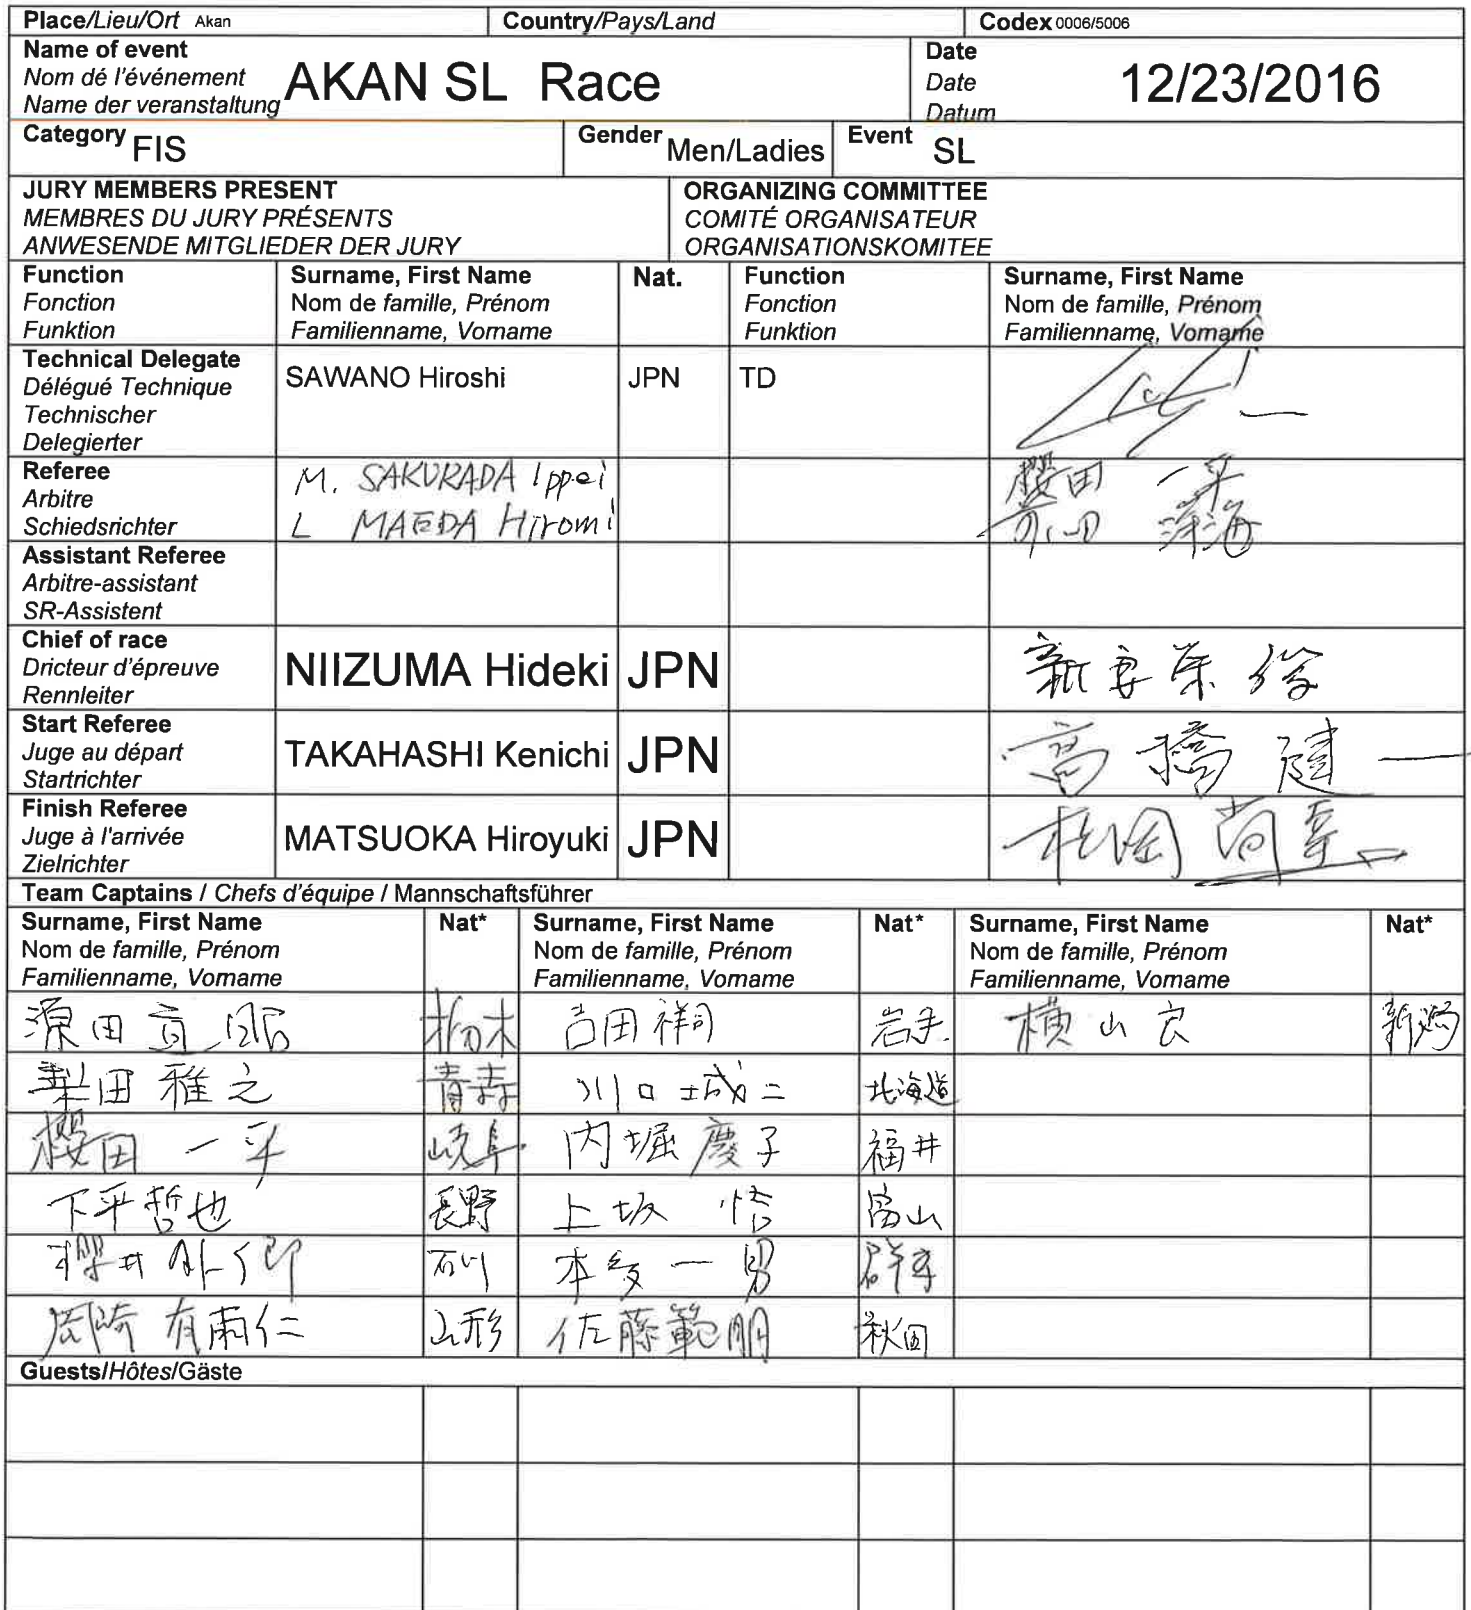 Place/Lieu/Ort Akan Country/Pays/Land Codex 0006/5006
Name of event
Nom dé l'événement
Name der veranstaltung
AKAN SL Race
Date
Date
Datum
12/23/2016
Category FIS Gender Men/Ladies Event SL
JURY MEMBERS PRESENT
MEMBRES DU JURY PRÉSENTS
ANWESENDE MITGLIEDER DER JURY
ORGANIZING COMMITTEE
COMITÉ ORGANISATEUR
ORGANISATIONSKOMITEE
Function
Fonction
Funktion
Surname, First Name
Nom de famille, Prénom
Familienname, Vorname
Nat.
Function
Fonction
Funktion
Surname, First Name
Nom de famille, Prénom
Familienname, Vorname
Technical Delegate
Délégué Technique
Technischer
Delegierter
SAWANO Hiroshi JPN TD
Referee
Arbitre
Schiedsrichter
M. SAKURADA Ippei
L MAEDA Hiromi
櫻田 一平
前田 洋海
Assistant Referee
Arbitre-assistant
SR-Assistent
Chief of race
Dricteur d'épreuve
Rennleiter
NIIZUMA Hideki JPN
新妻
Start Referee
Juge au départ
Startrichter
TAKAHASHI Kenichi JPN
高橋 健一
Finish Referee
Juge à l'arrivée
Zielrichter
MATSUOKA Hiroyuki JPN
松岡
Team Captains / Chefs d'équipe / Mannschaftsführer
Surname, First Name
Nom de famille, Prénom
Familienname, Vorname
Nat*
Surname, First Name
Nom de famille, Prénom
Familienname, Vorname
Nat*
Surname, First Name
Nom de famille, Prénom
Familienname, Vorname
Nat*
源田 栃木 吉田祥司 岩手 横山 良 新潟
梨田 雅之 青森 川口城二 北海道
櫻田 一平 岐阜 内堀慶子 福井
下平哲也 長野 上坂 悟 富山
櫻井 石川 本多一男 群馬
岡崎 山形 佐藤範朋 秋田
Guests/Hôtes/Gäste